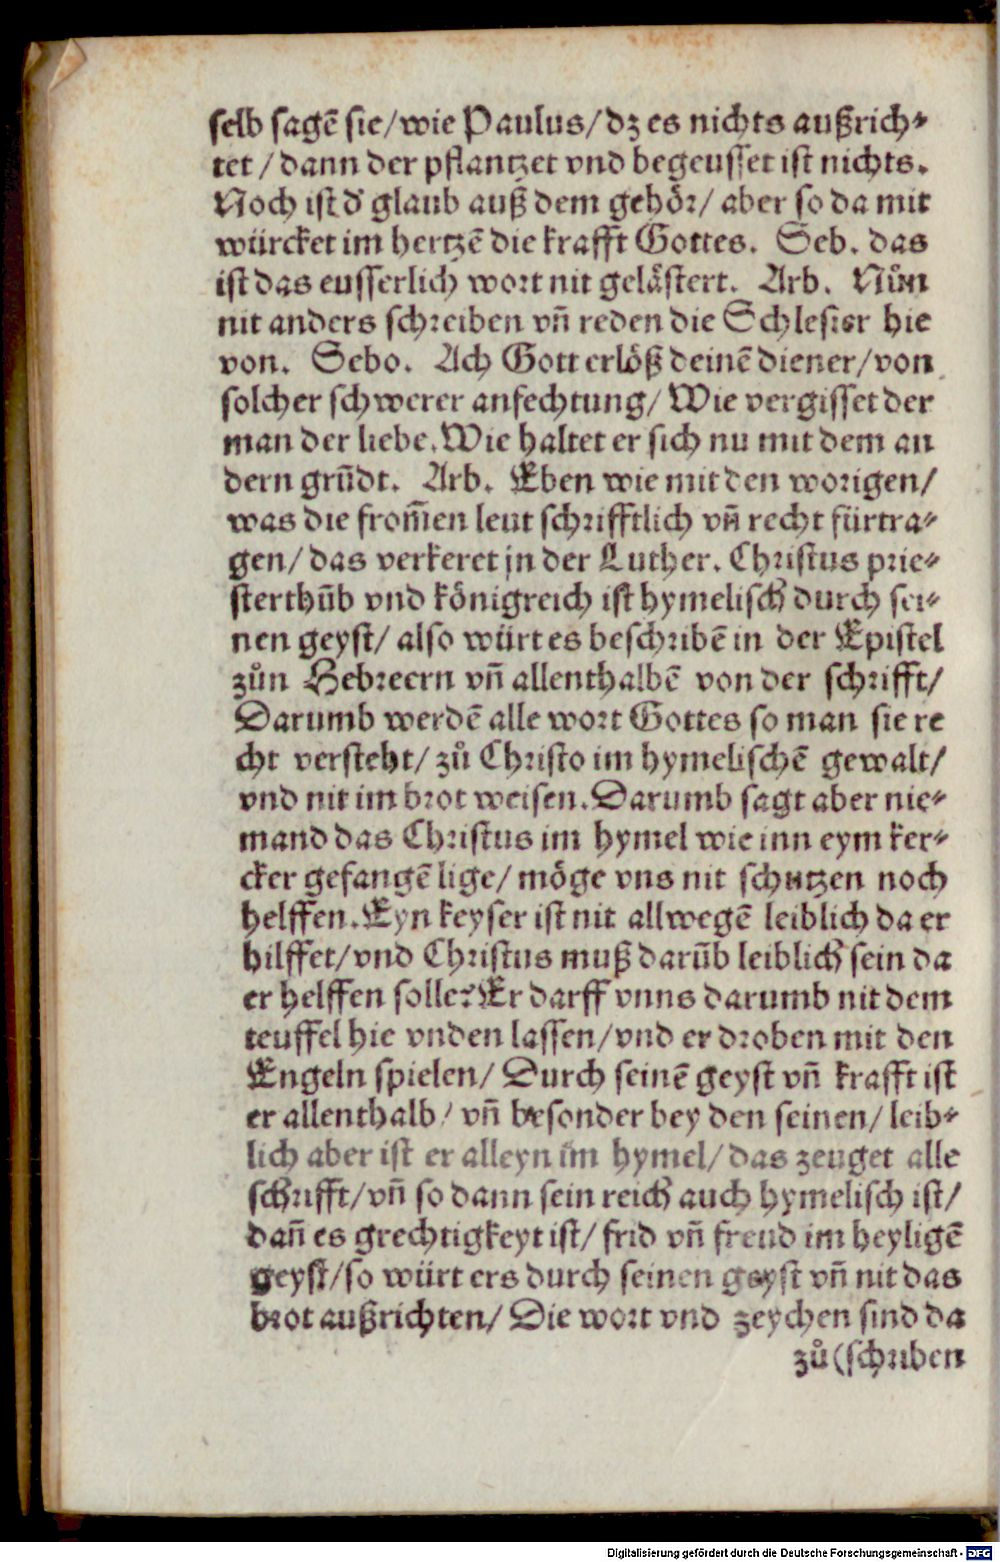 selb sagē sie/wie Paulus/dz es nichts außrich⸗
tet/dann der pflantzet vnd begeusset ist nichts.
Noch ist d' glaub auß dem gehör/ aber so da mit
würcket im hertzē die krafft Gottes. Seb. das
ist das eusserlich wort nit gelästert. Arb. Nůn
nit anders schreiben vn̄ reden die Schlesier hie
von. Sebo. Ach Gott erlöß deinē diener/von
solcher schwerer anfechtung/ Wie vergisset der
man der liebe. Wie haltet er sich nu mit dem an
dern grūdt. Arb. Eben wie mit den worigen/
was die from̄en leut schrifftlich vn̄ recht fürtra⸗
gen/ das verkeret jn der Luther. Christus prie⸗
sterthūb vnd königreich ist hymelisch durch sei⸗
nen geyst/ also würt es beschribē in der Epistel
zůn Hebreern vn̄ allenthalbē von der schrifft/
Darumb werdē alle wort Gottes so man sie re
cht versteht/ zů Christo im hymelischē gewalt/
vnd nit im brot weisen. Darumb sagt aber nie⸗
mand das Christus im hymel wie inn eym ker⸗
cker gefangē lige/ möge vns nit schutzen noch
helffen. Eyn keyser ist nit allwegē leiblich da er
hilffet/vnd Christus muß darūb leiblich sein da
er helffen solle? Er darff vnns darumb nit dem
teuffel hie vnden lassen/vnd er droben mit den
Engeln spielen/ Durch seinē geyst vn̄ krafft ist
er allenthalb/ vn̄ besonder bey den seinen/ leib⸗
lich aber ist er alleyn im hymel/ das zeuget alle
schrifft/vn̄ so dann sein reich auch hymelisch ist/
dan̄ es grechtigkeyt ist/ frid vn̄ freud im heyligē
geyst/so würt ers durch seinen geyst vn̄ nit das
brot außrichten/ Die wort vnd zeychen sind da
zů (schriben
Digitalisierung gefördert durch die Deutsche Forschungsgemeinschaft - DFG